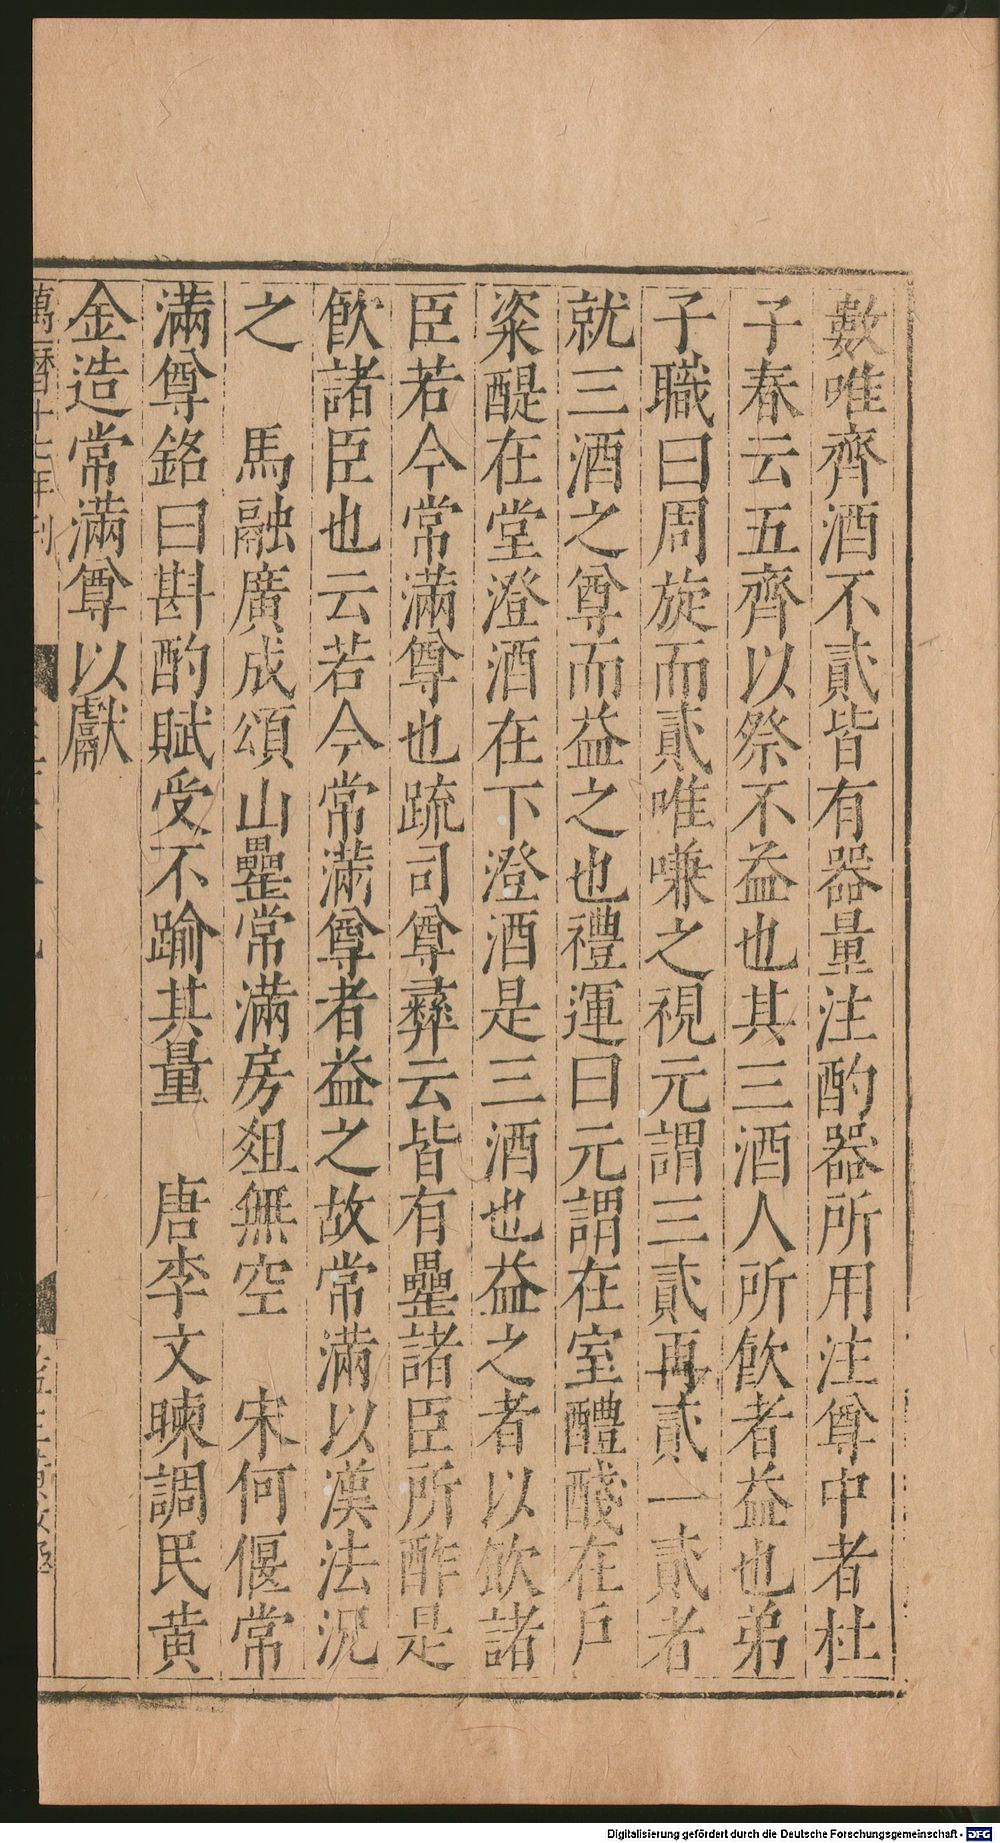 數唯齊酒不貳皆有器量注酌器所用注尊中者杜
子春云五齊以祭不益也其三酒人所飲者益也弟
子職曰周旋而貳唯嗛之視元謂三貳再貳一貳者
就三酒之尊而益之也禮運曰元謂在室醴醆在戶
粢醍在堂澄酒在下澄酒是三酒也益之者以飲諸
臣若今常滿尊也疏司尊彝云皆有罍諸臣所酢是
飲諸臣也云若今常滿尊者益之故常滿以漢法況
之　馬融廣成頌山罍常滿房俎無空　宋何偃常
滿尊銘曰斟酌賦受不踰其量　唐李文暕調民黄
金造常滿尊以獻
萬曆十七年刊
Digitalisierung gefördert durch die Deutsche Forschungsgemeinschaft - DFG